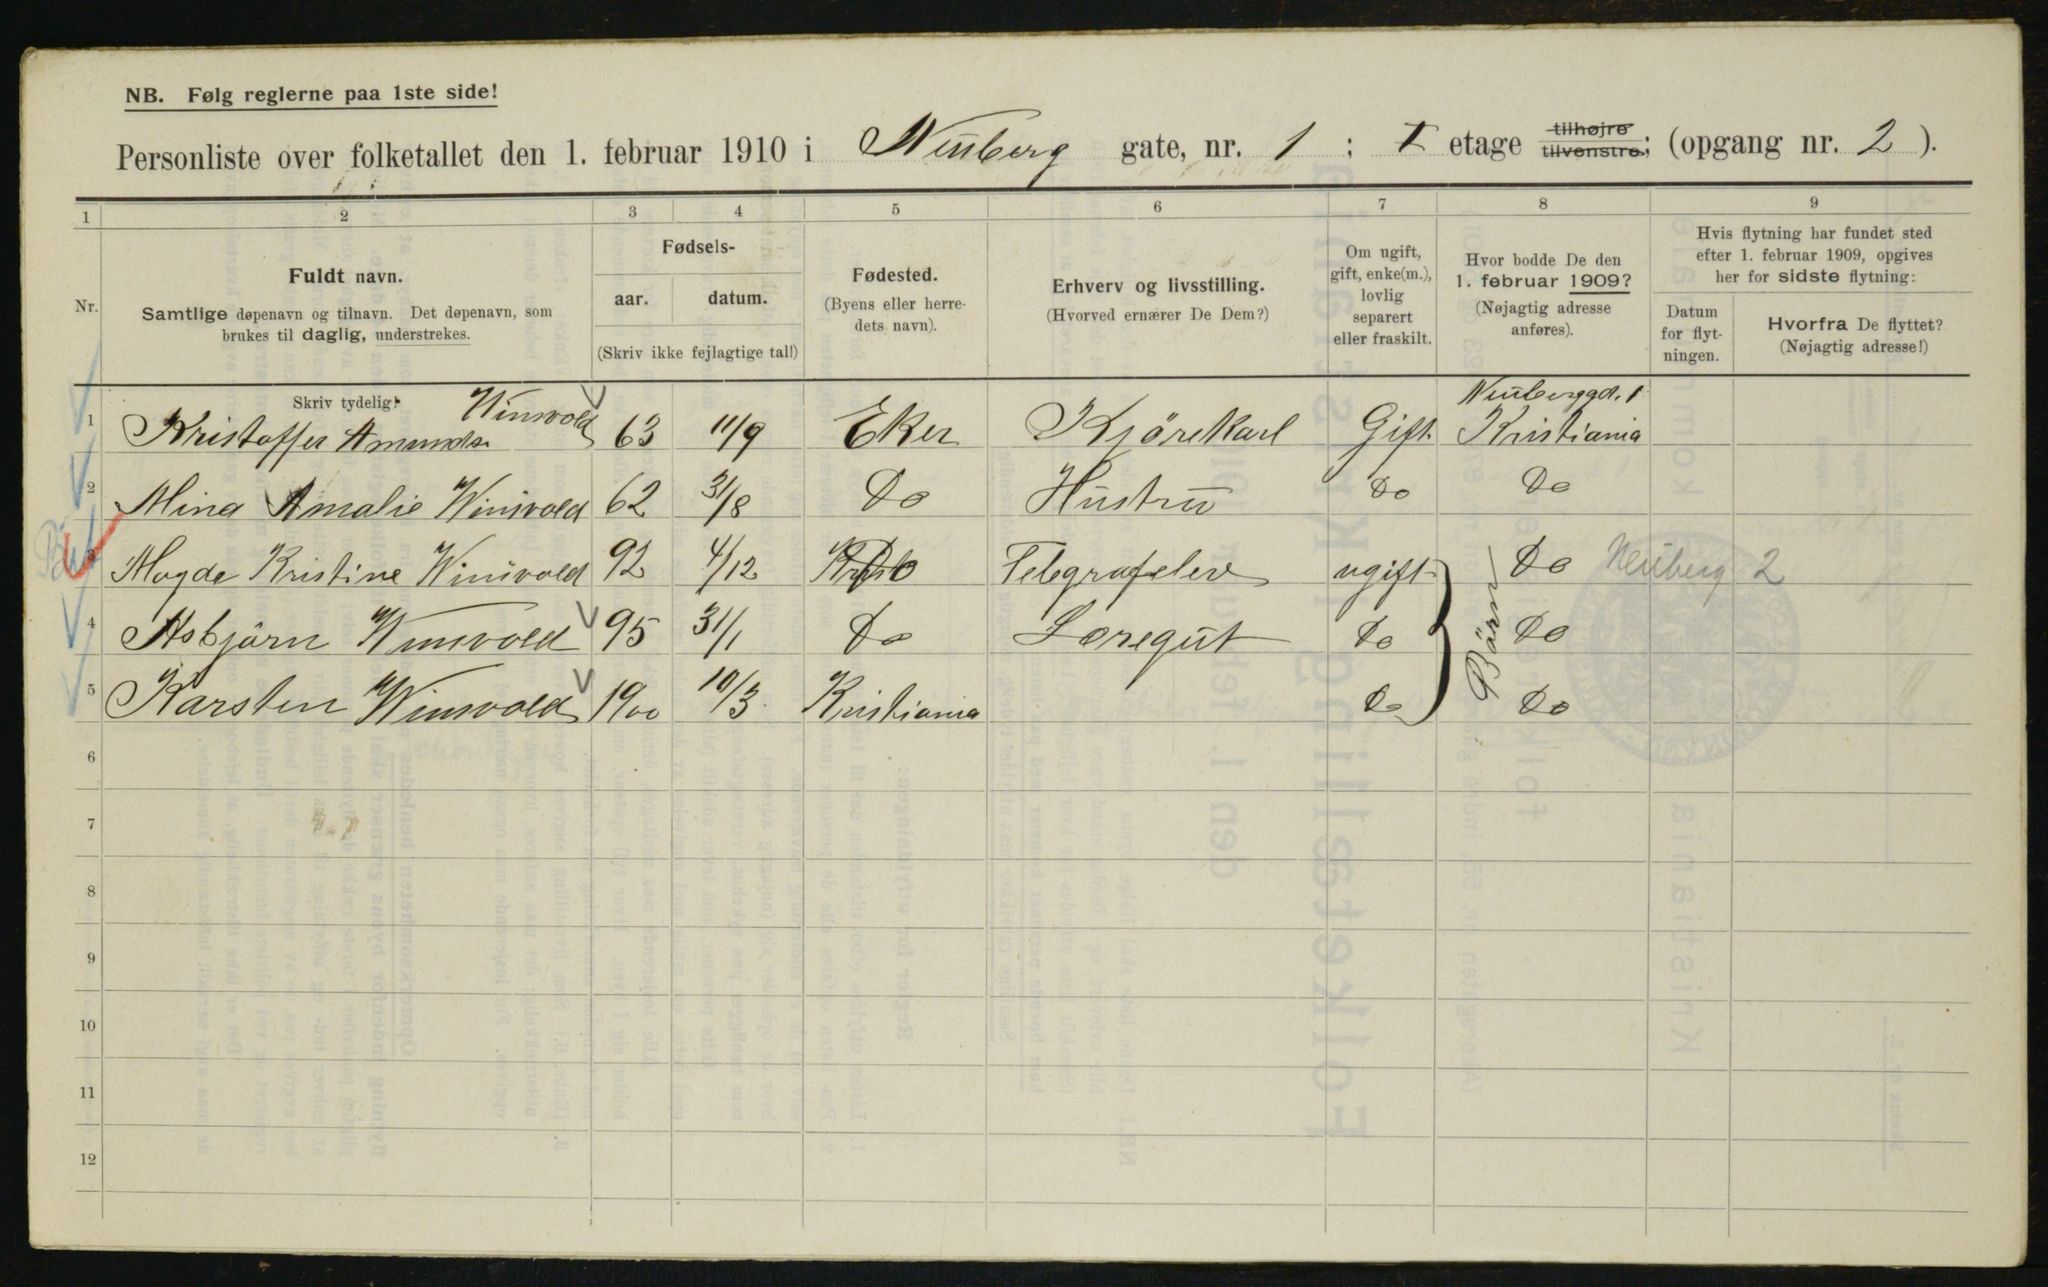 NB. Følg reglerne paa 1ste side!
Personliste over folketallet den 1. februar 1910 i Neuberg gate, nr. 1 ; I etage tilhøjre tilvenstre; (opgang nr. 2 ).
1 2 3 4 5 6 7 8 9
Nr.
Fuldt navn.
Samtlige døpenavn og tilnavn. Det døpenavn, som
brukes til daglig, understrekes.
Fødsels-
aar. datum.
(Skriv ikke fejlagtige tal!)
Fødested.
(Byens eller herre-
dets navn).
Erhverv og livsstilling.
(Hvorved ernærer De Dem?)
Om ugift,
gift, enke(m.),
lovlig
separert
eller fraskilt.
Hvor bodde De den
1. februar 1909?
(Nøjagtig adresse
anføres).
Hvis flytning har fundet sted
efter 1. februar 1909, opgives
her for sidste flytning:
Datum
for flyt-
ningen.
Hvorfra De flyttet?
(Nøjagtig adresse!)
Skriv tydelig!
1 Kristoffer Amunds. Winsvold 63 11/9 Eker Kjörekarl Gift Neuberggd. 1 Kristiania
2 Mina Amalie Winsvold 62 31/8 Do Hustru Do Do
3 Magda Kristine Winsvold 92 4/12 Do Telegrafelev ugift Do Neuberg 2
4 Asbjörn Winsvold 95 31/1 Do Löregut Do Do
5 Karsten Winsvold 1900 10/3 Kristiania Do Do
Börn
6
7
8
9
10
11
12